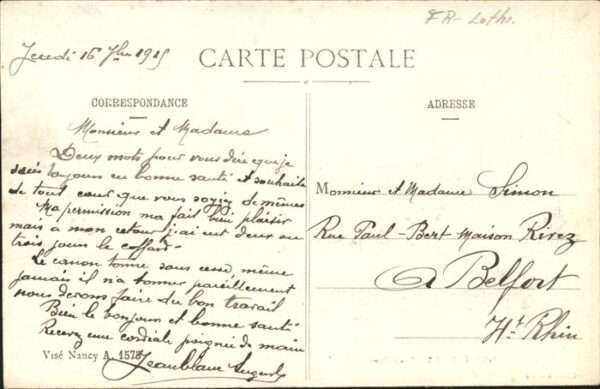 FR - Loth.
Jeudi 16 7bre 1915
CARTE POSTALE
CORRESPONDANCE
ADRESSE
Monsieur et Madame
Deux mots pour vous dire que je
suis toujours en bonne santé et souhaite
de tout cœur que vous soyez de mêmes
Ma permission ma fait bien plaisir
mais a mon retour j'ai eut deux ou
trois jours le caffard
Le canon tonne sans cesse, même
jamais il n'a tonner pareillement
nous devons faire du bon travail
Bien le bonjour et bonne santé
Recevez une cordiale poignée de main
Jeanblanc
Visé Nancy A. 1578
Monsieur et Madame Simon
Rue Paul-Bert Maison Rivez
A Belfort
Ht Rhin